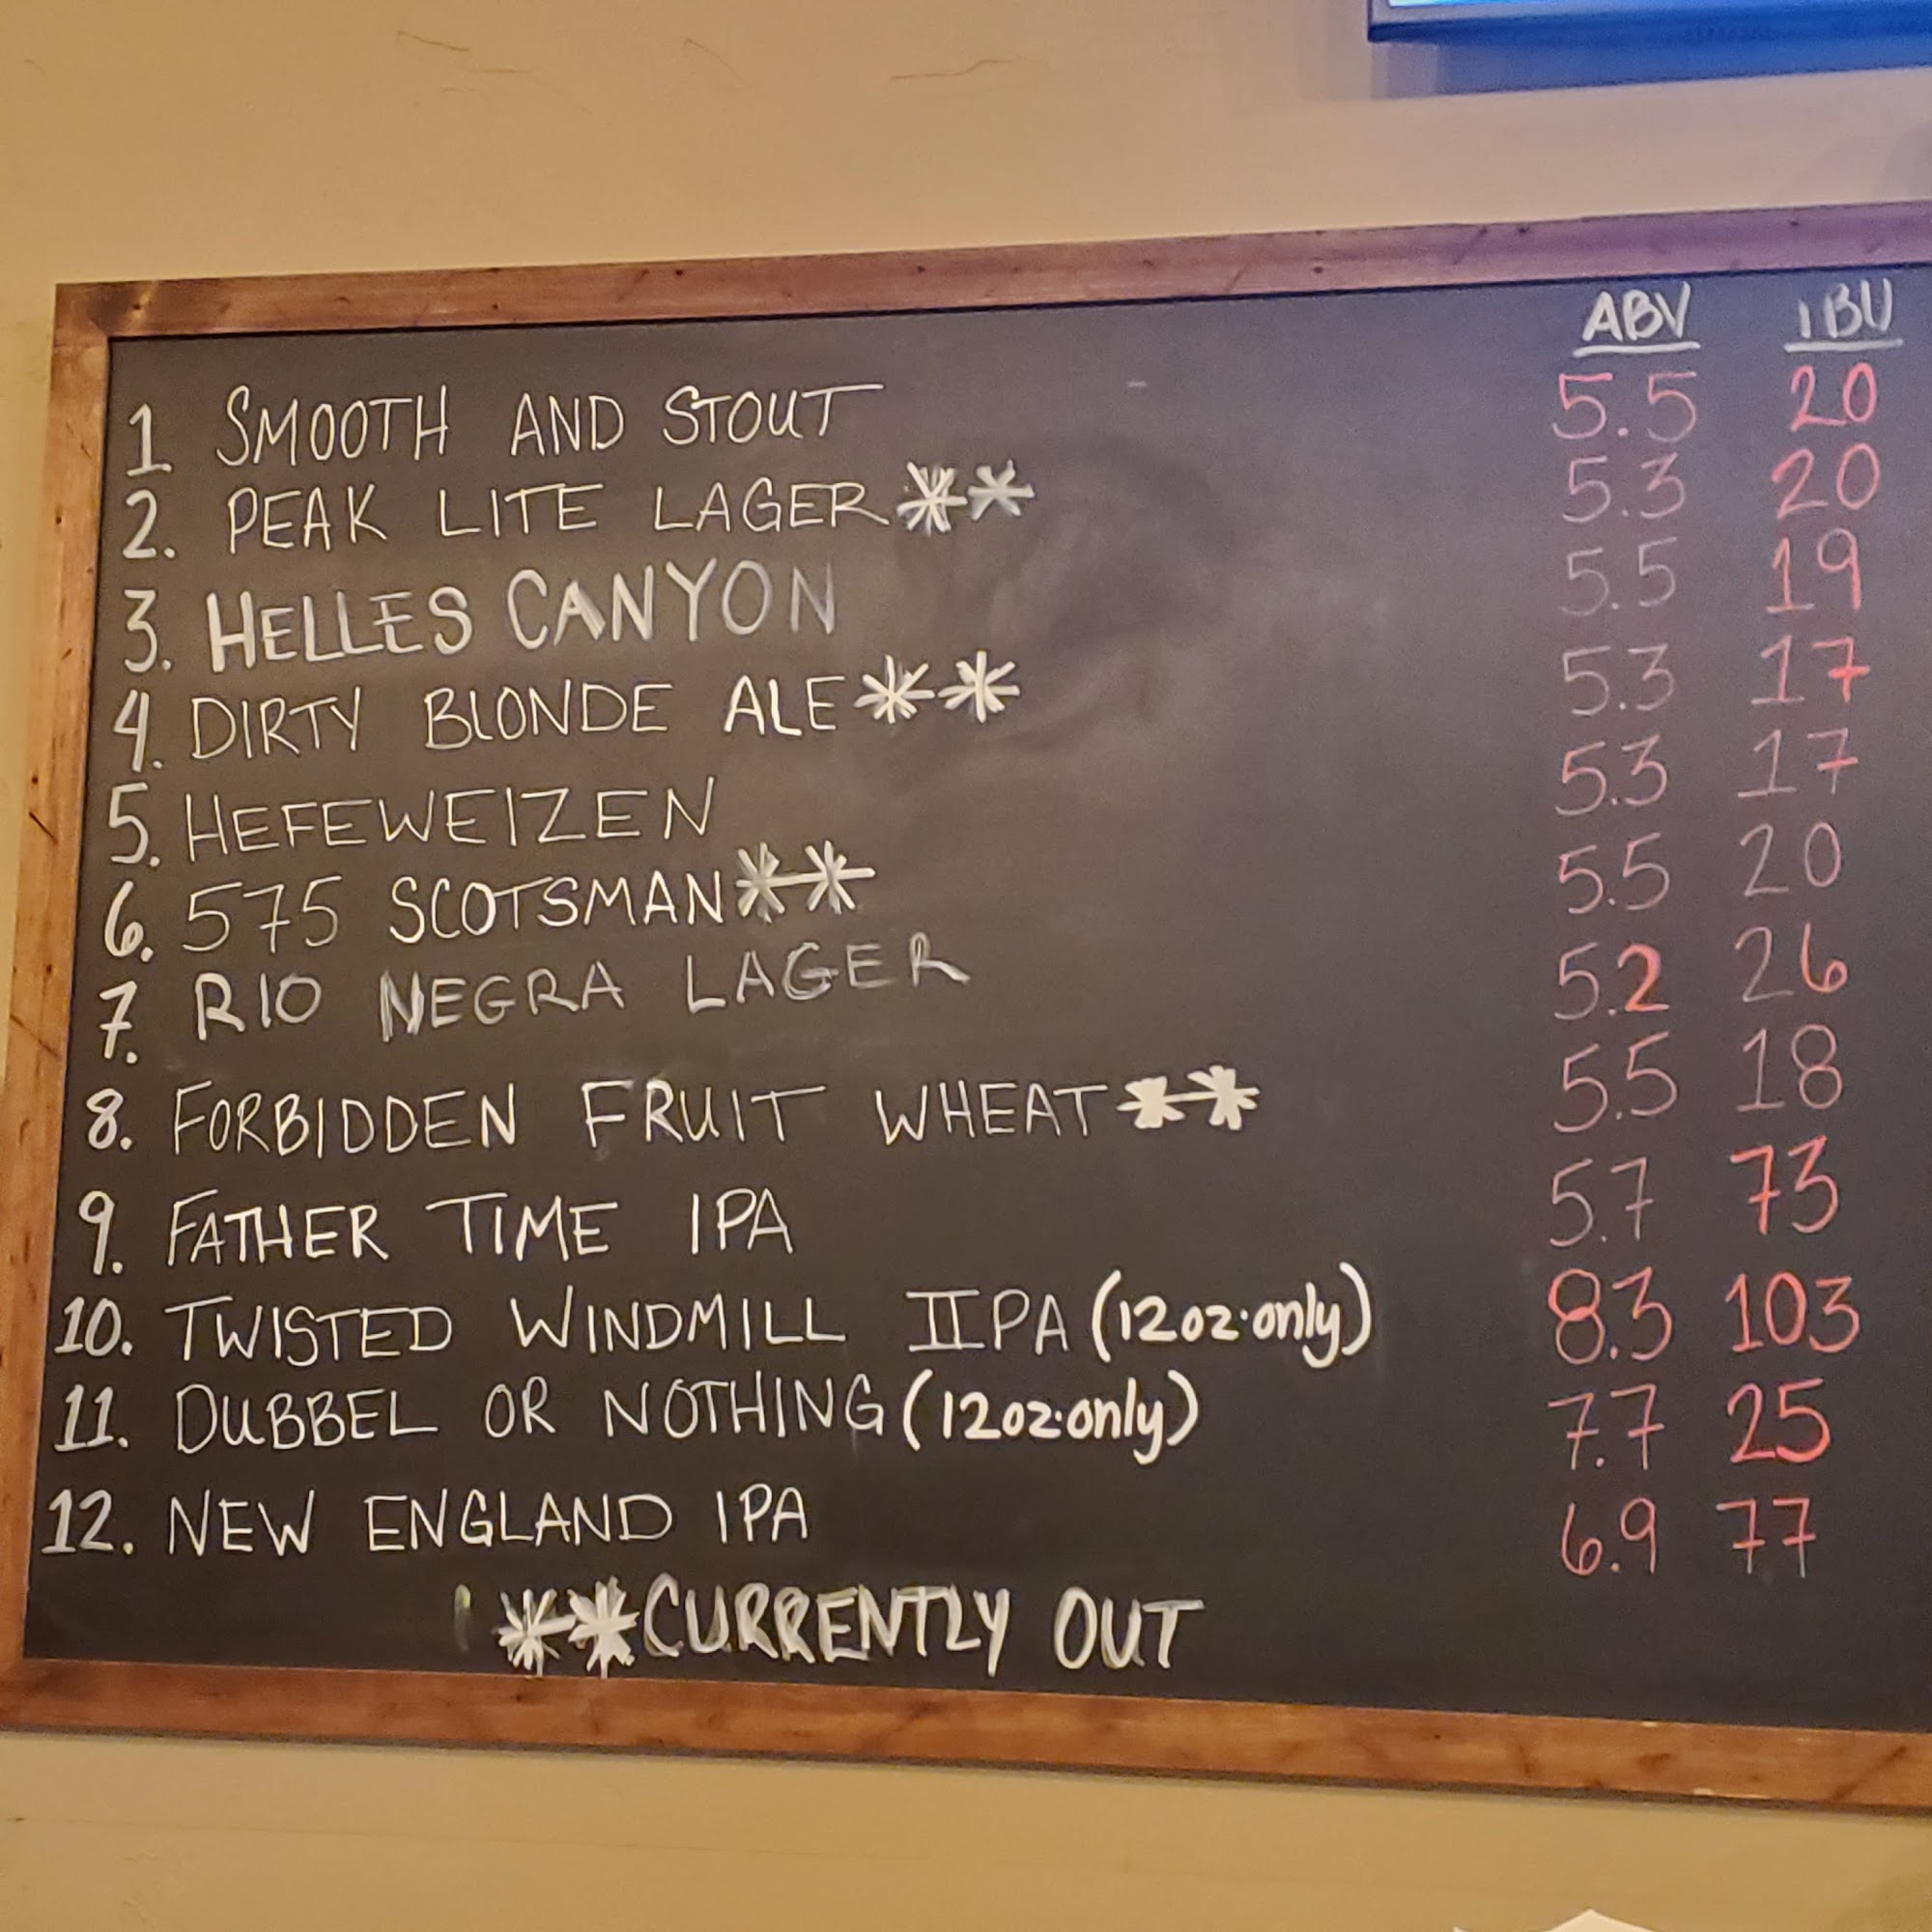 ABV IBU
1 SMOOTH AND STOUT 5.5 20
2. PEAK LITE LAGER ** 5.3 20
3. HELLES CANYON 5.5 19
4. DIRTY BLONDE ALE ** 5.3 17
5. HEFEWEIZEN 5.3 17
6. 575 SCOTSMAN ** 5.5 20
7. RIO NEGRA LAGER 5.2 26
8. FORBIDDEN FRUIT WHEAT ** 5.5 18
9. FATHER TIME IPA 5.7 73
10. TWISTED WINDMILL IIPA (12oz. only) 8.3 103
11. DUBBEL OR NOTHING (12oz. only) 7.7 25
12. NEW ENGLAND IPA 6.9 77
** CURRENTLY OUT